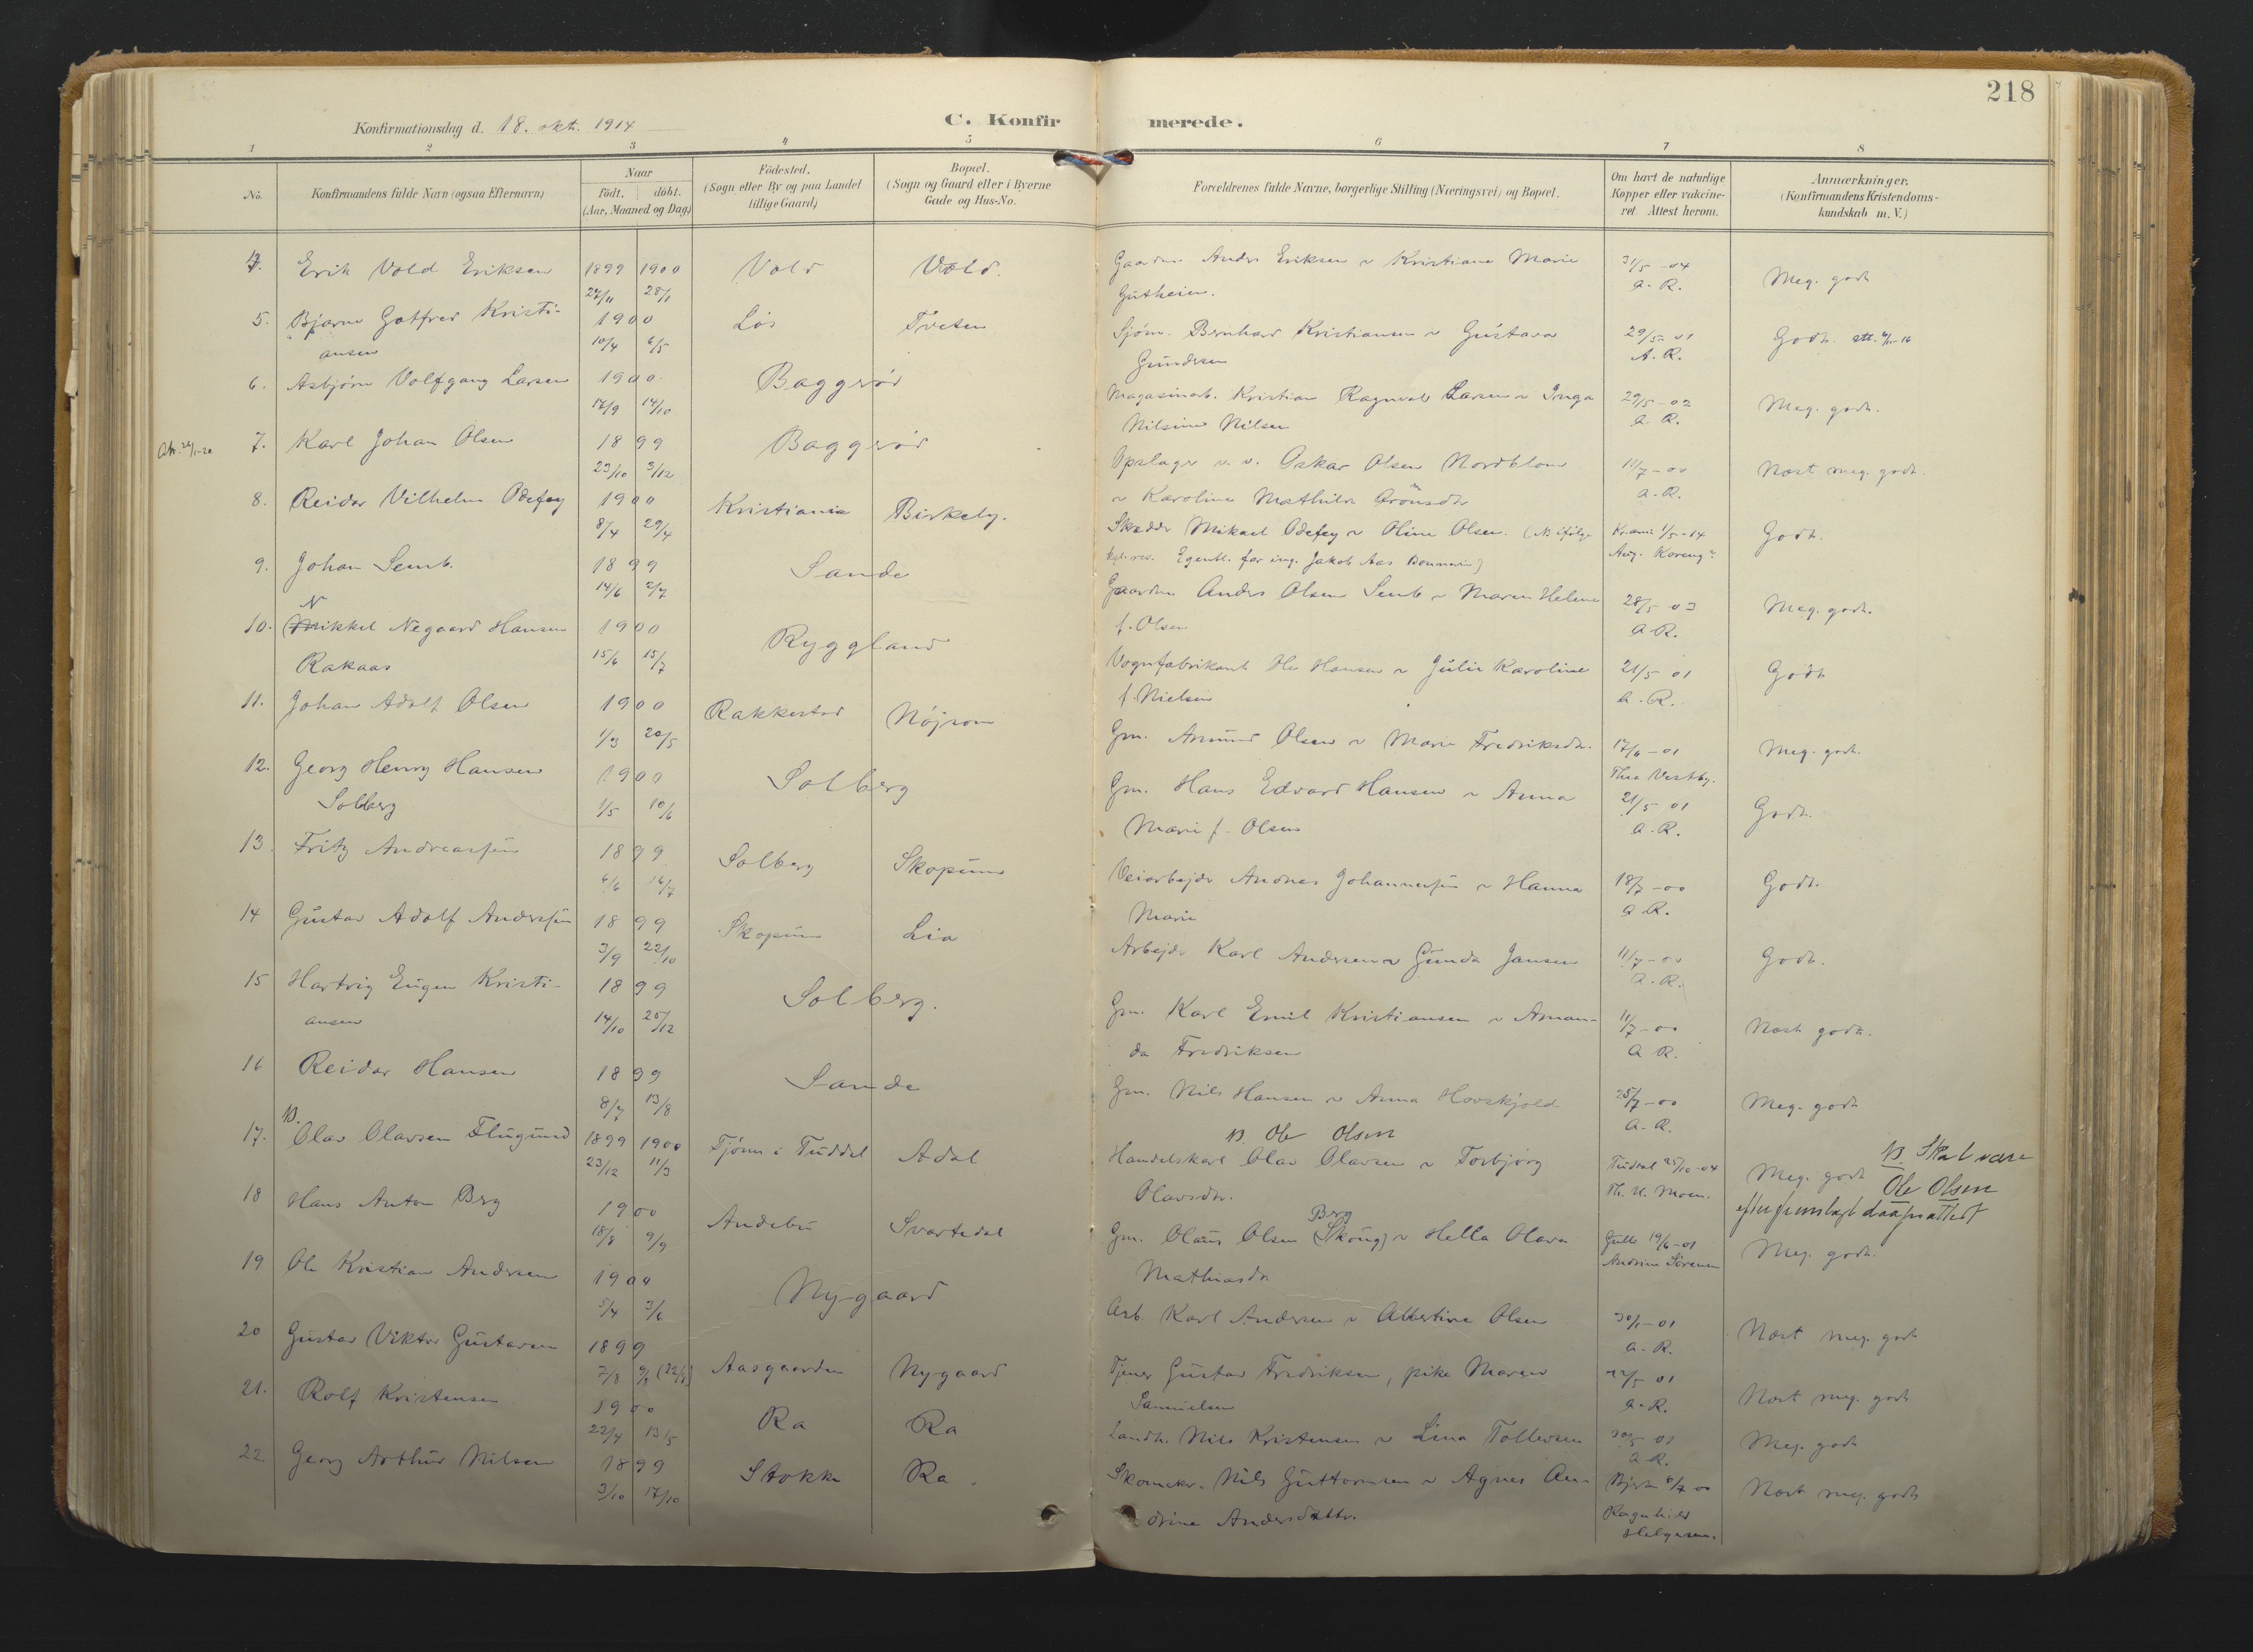 218
Konfirmationsdag d. 18. okt. 1914
C. Konfirmerede.
1 2 3 4 5 6 7 8
No.
Konfirmandens fulde Navn (ogsaa Efternavn)
Naar
født. døbt.
(Aar, Maaned og Dag.)
Fødested.
(Sogn eller By og paa Landet
tillige Gaard)
Bopæl.
(Sogn og Gaard eller i Byerne
Gade og Hus-No.
Forældrenes fulde Navne, borgerlige Stilling (Næringsvei) og Bopæl.
Om havt de naturlige
Kopper eller vakcine-
ret. Attest herom.
Anmærkninger.
(Konfirmandens Kristendoms-
kundskab m. V.)
4. Erik Vold Eriksen 1899 1900 Vold Vold. Anders Eriksen ~ Kristiane Marie 31/5 -04 Meg. godt
27/11 28/1 Gutheim. A. R.
5. Bjarne Gotfred Kristi- 1900 Løs Tveten Sjøm. Bernhard Kristiansen ~ Gustava 29/5 - 01 Godt. att. 4/1-16
ansen 10/4 6/5 Gundersen A. R.
6. Asbjørn Volfgang Larsen 1900 Baggerød Magasinarb. Kristian Ragnvald Larsen ~ Inga 29/5 -02 Meg. godt.
17/9 14/10 Nilsine Nilsen A. R.
Att. 24/1-20 7. Karl Johan Olsen 1899 Baggerød Opslager v. v. Oskar Olsen Nordblom 11/7 -00 Næst meg. godt.
23/10 3/12 ~ Karoline Mathilde A. R.
8. Reidar Vilhelm Odefey 1900 Kristiania Birkely. Skrædder Mikael Odefey ~ Oline Olsen. (NB ifølge Kr.ania 1/5 -14 Godt.
8/4 29/4 kgl. res. Egentl. far ing. Jakob Aas Bonnevie) Aug. Koren
9. Johan Semb. 1899 Sande Gaardm. Anders Olsen Semb ~ Maren Helene 28/5 03 Meg. godt.
14/6 2/7 f. Olsen A. R.
N
10. Mikkel Negaard Hansen 1900 Ryggland Vognfabrikant Ole Hansen ~ Julie Karoline 21/5 01 Godt
Rakaas 15/6 15/7 f. Nielsen A. R.
11. Johan Adolf Olsen 1900 Rakkestad Nøjsom Gm. Amund Olsen ~ Marie Fredriksdr. 17/6 -01 Meg. godt.
1/3 20/5 Thea Vestby.
12. Georg Henry Hansen 1900 Solberg Gm. Hans Edvard Hansen ~ Anna 21/5 01 Godt.
Solberg 1/5 10/6 Marie f. Olsen A. R.
13. Fritz Andreassen 1899 Solberg Skopum Veiarbejder Andreas Johannessen ~ Hanna 18/7 -00 Godt.
6/6 16/7 Marie A. R.
14 Gustav Adolf Anderssen 1899 Skopum Lia Arbejder Karl Andersen ~ Gunda Jansen 11/7 -00 Godt.
3/9 22/10 A. R.
15 Hartvig Eugen Kristi- 1899 Solberg. Gm. Karl Emil Kristiansen ~ Aman- 11/7 -00 Næst godt.
ansen 14/10 25/12 da Fredriksen A. R.
16 Reidar Hansen 1899 Sande Gm. Nils Hansen ~ Anna Hovskjold 25/7 -00 Meg. godt
8/7 13/8 A. R.
NB. NB. Ole Olsen NB. Skal være
17. Olav Olavsen Flugund 1899 1900 Tjønn i Tuddal Adal Handelskarl Olav Olavsen ~ Torbjørg Tudal 25/10 -04 Meg. godt Ole Olsen
23/12 11/3 Olavsdr. Th. H. Moen. efter fremlagt daapsattest
Berg
18 Hans Anton Berg 1900 Andebu Svartedal Gm. Olaus Olsen (Skoug) ~ Hella Olava Gulli 19/6 -01 Meg. godt.
18/8 9/9 Mathiasdr Andrine Sørensen
19 Ole Kristian Andersen 1900 Nygaard Arb. Karl Andersen ~ Albertine Olsen 30/1 -01 Næst meg. godt
5/4 3/6 A. R.
20 Gustav Viktor Gustavsen 1899 Aasgaarden Nygaard Tjener Gustav Fredriksen, pike Maren 01 Næst meg. godt
7/8 Samuelsen A. R.
21. Rolf Kristensen 1900 Ra Ra Landh. Nils Kristensen ~ Lina Tollevsen 01 Meg. godt
22/4 13/5 A. R.
22. Georg Arthur Nilsen 1899 Stokke Ra. Skomaker. Nils Guttormsen ~ Agnes An- 00 Næst meg. godt
3/10 17/10 drine Andersdatter. Ragnhild
Helgesen.